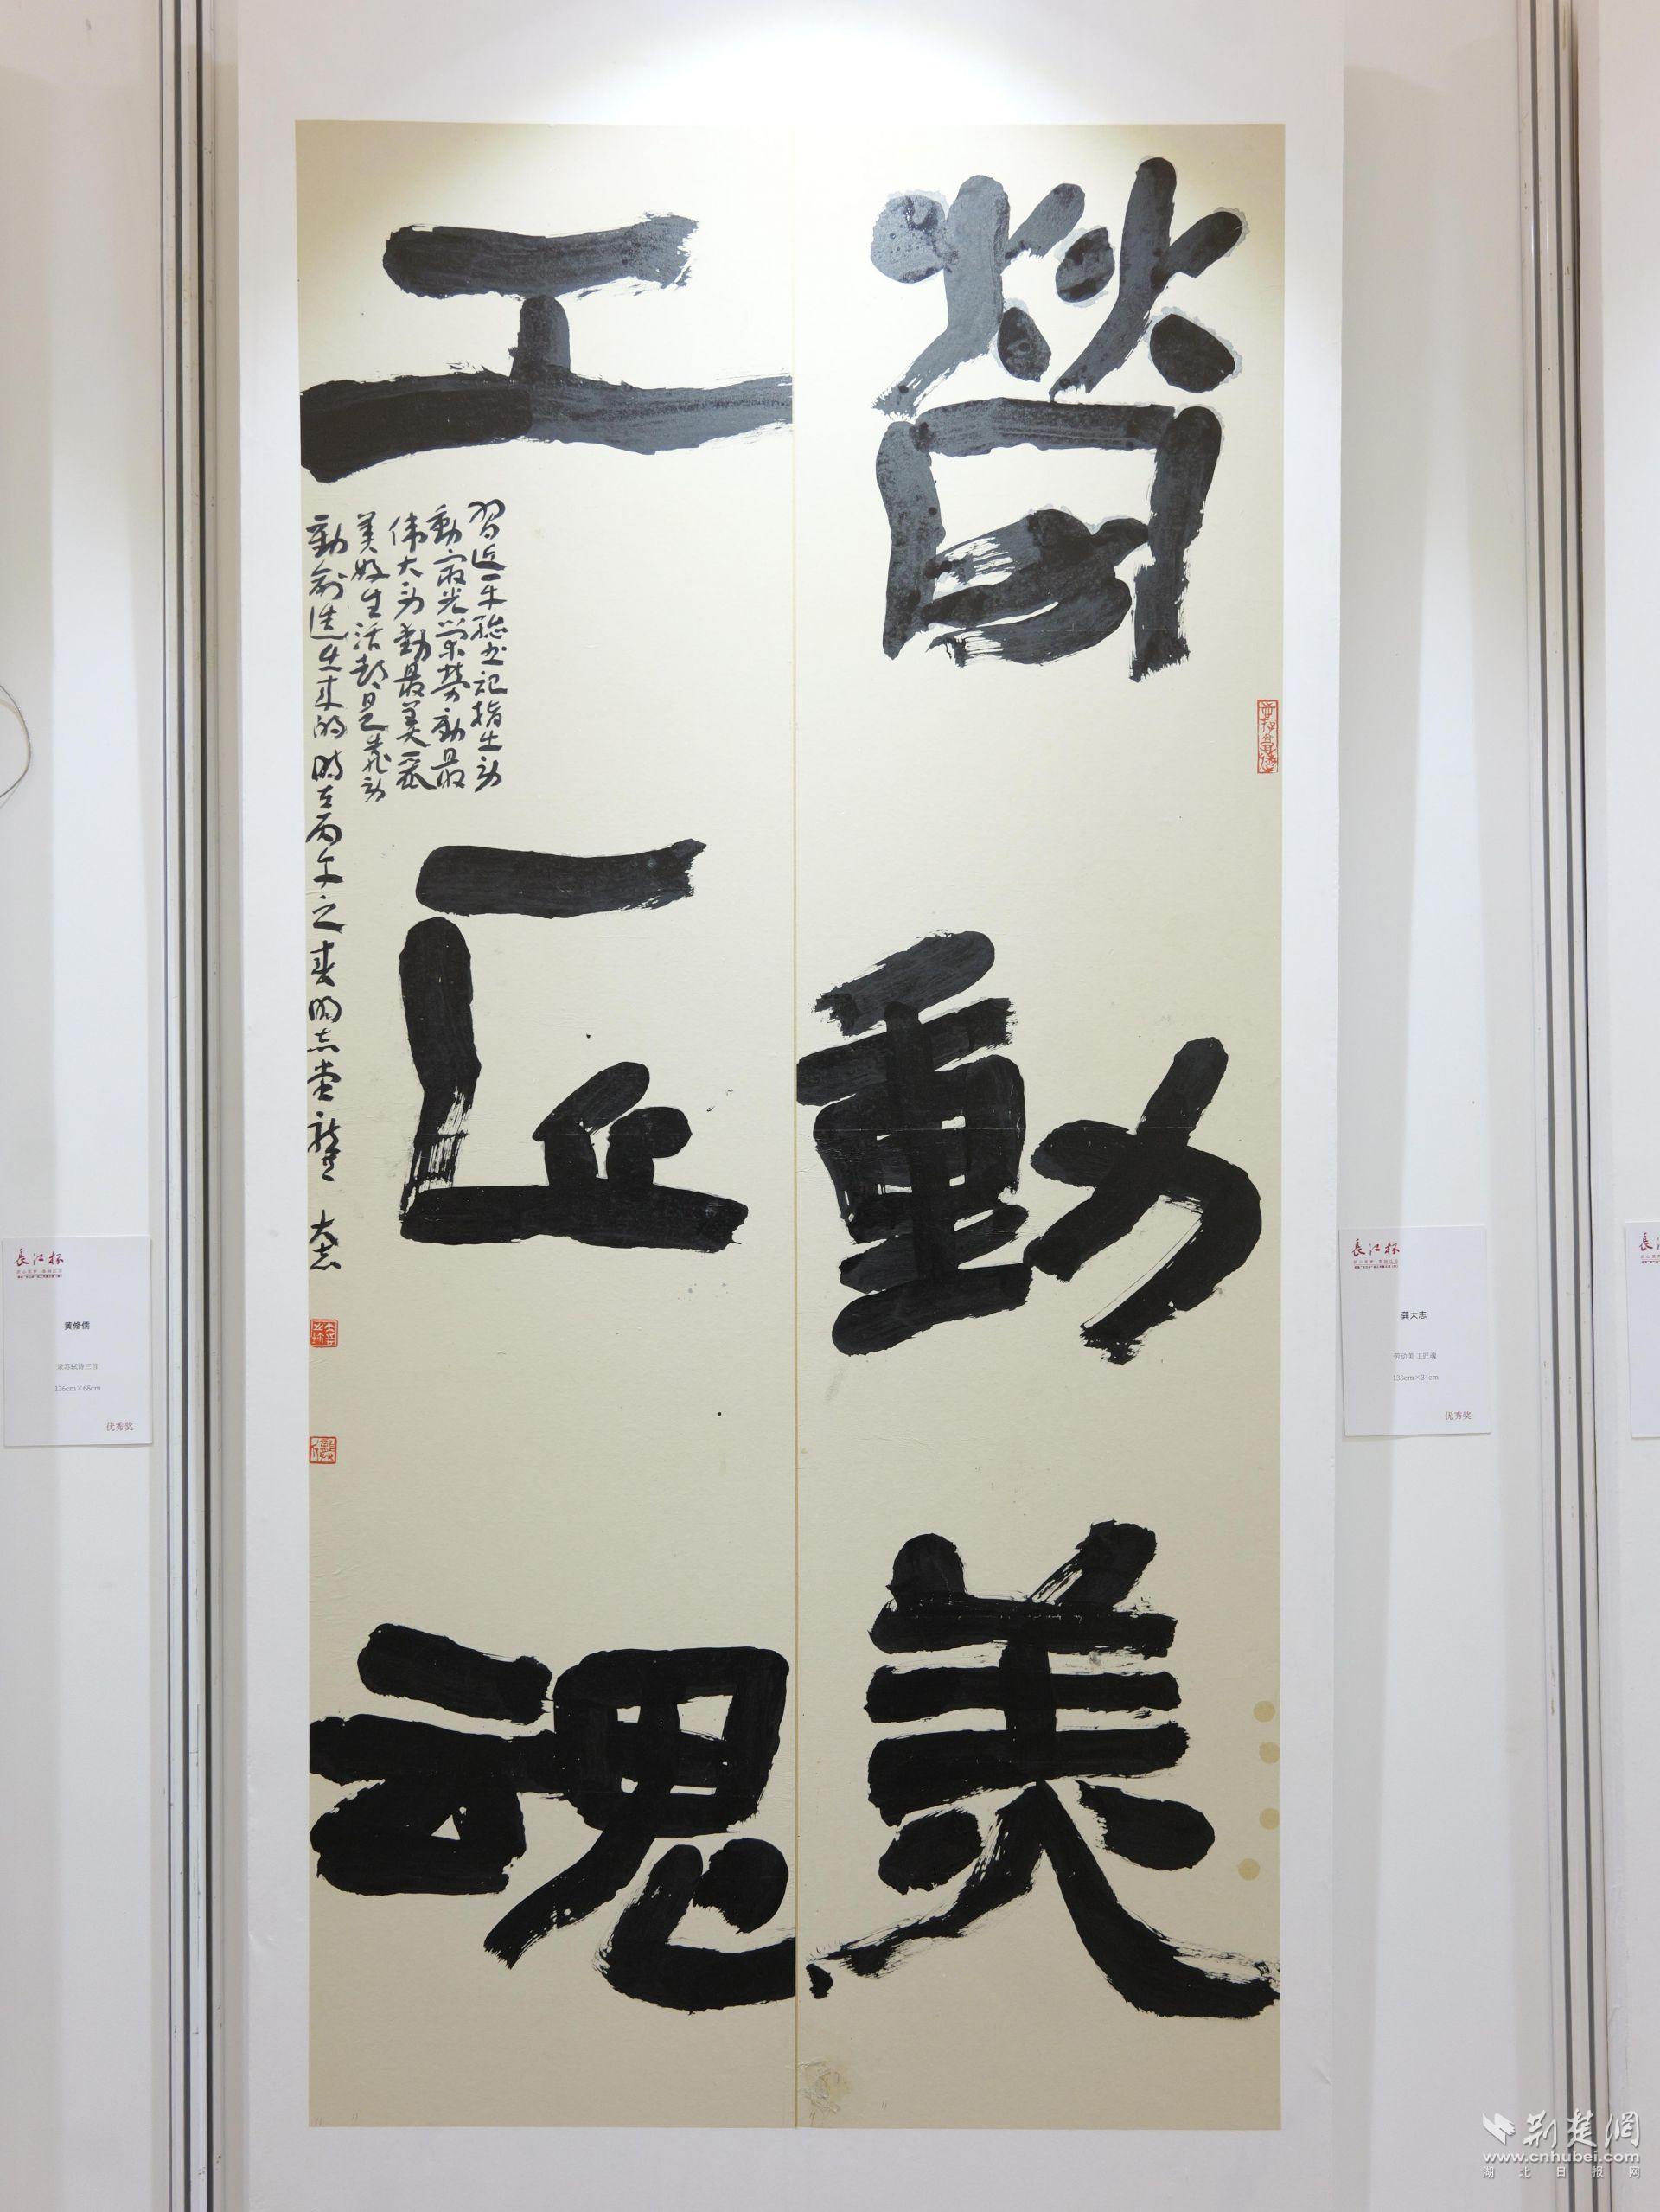 勞動美
工匠魂
習近平總书记指出勞
動最光榮勞動最
伟大勞動最美麗
美好生活都是靠勞
動創造出来的時在丙午之春明志堂龔大志
長江杯
黄修儒
录苏轼诗三首
136cm×68cm
优秀奖
長江杯
龚大志
劳动美 工匠魂
138cm×34cm
优秀奖
長
荆楚網
www.cnhubei.com
湖北日报网